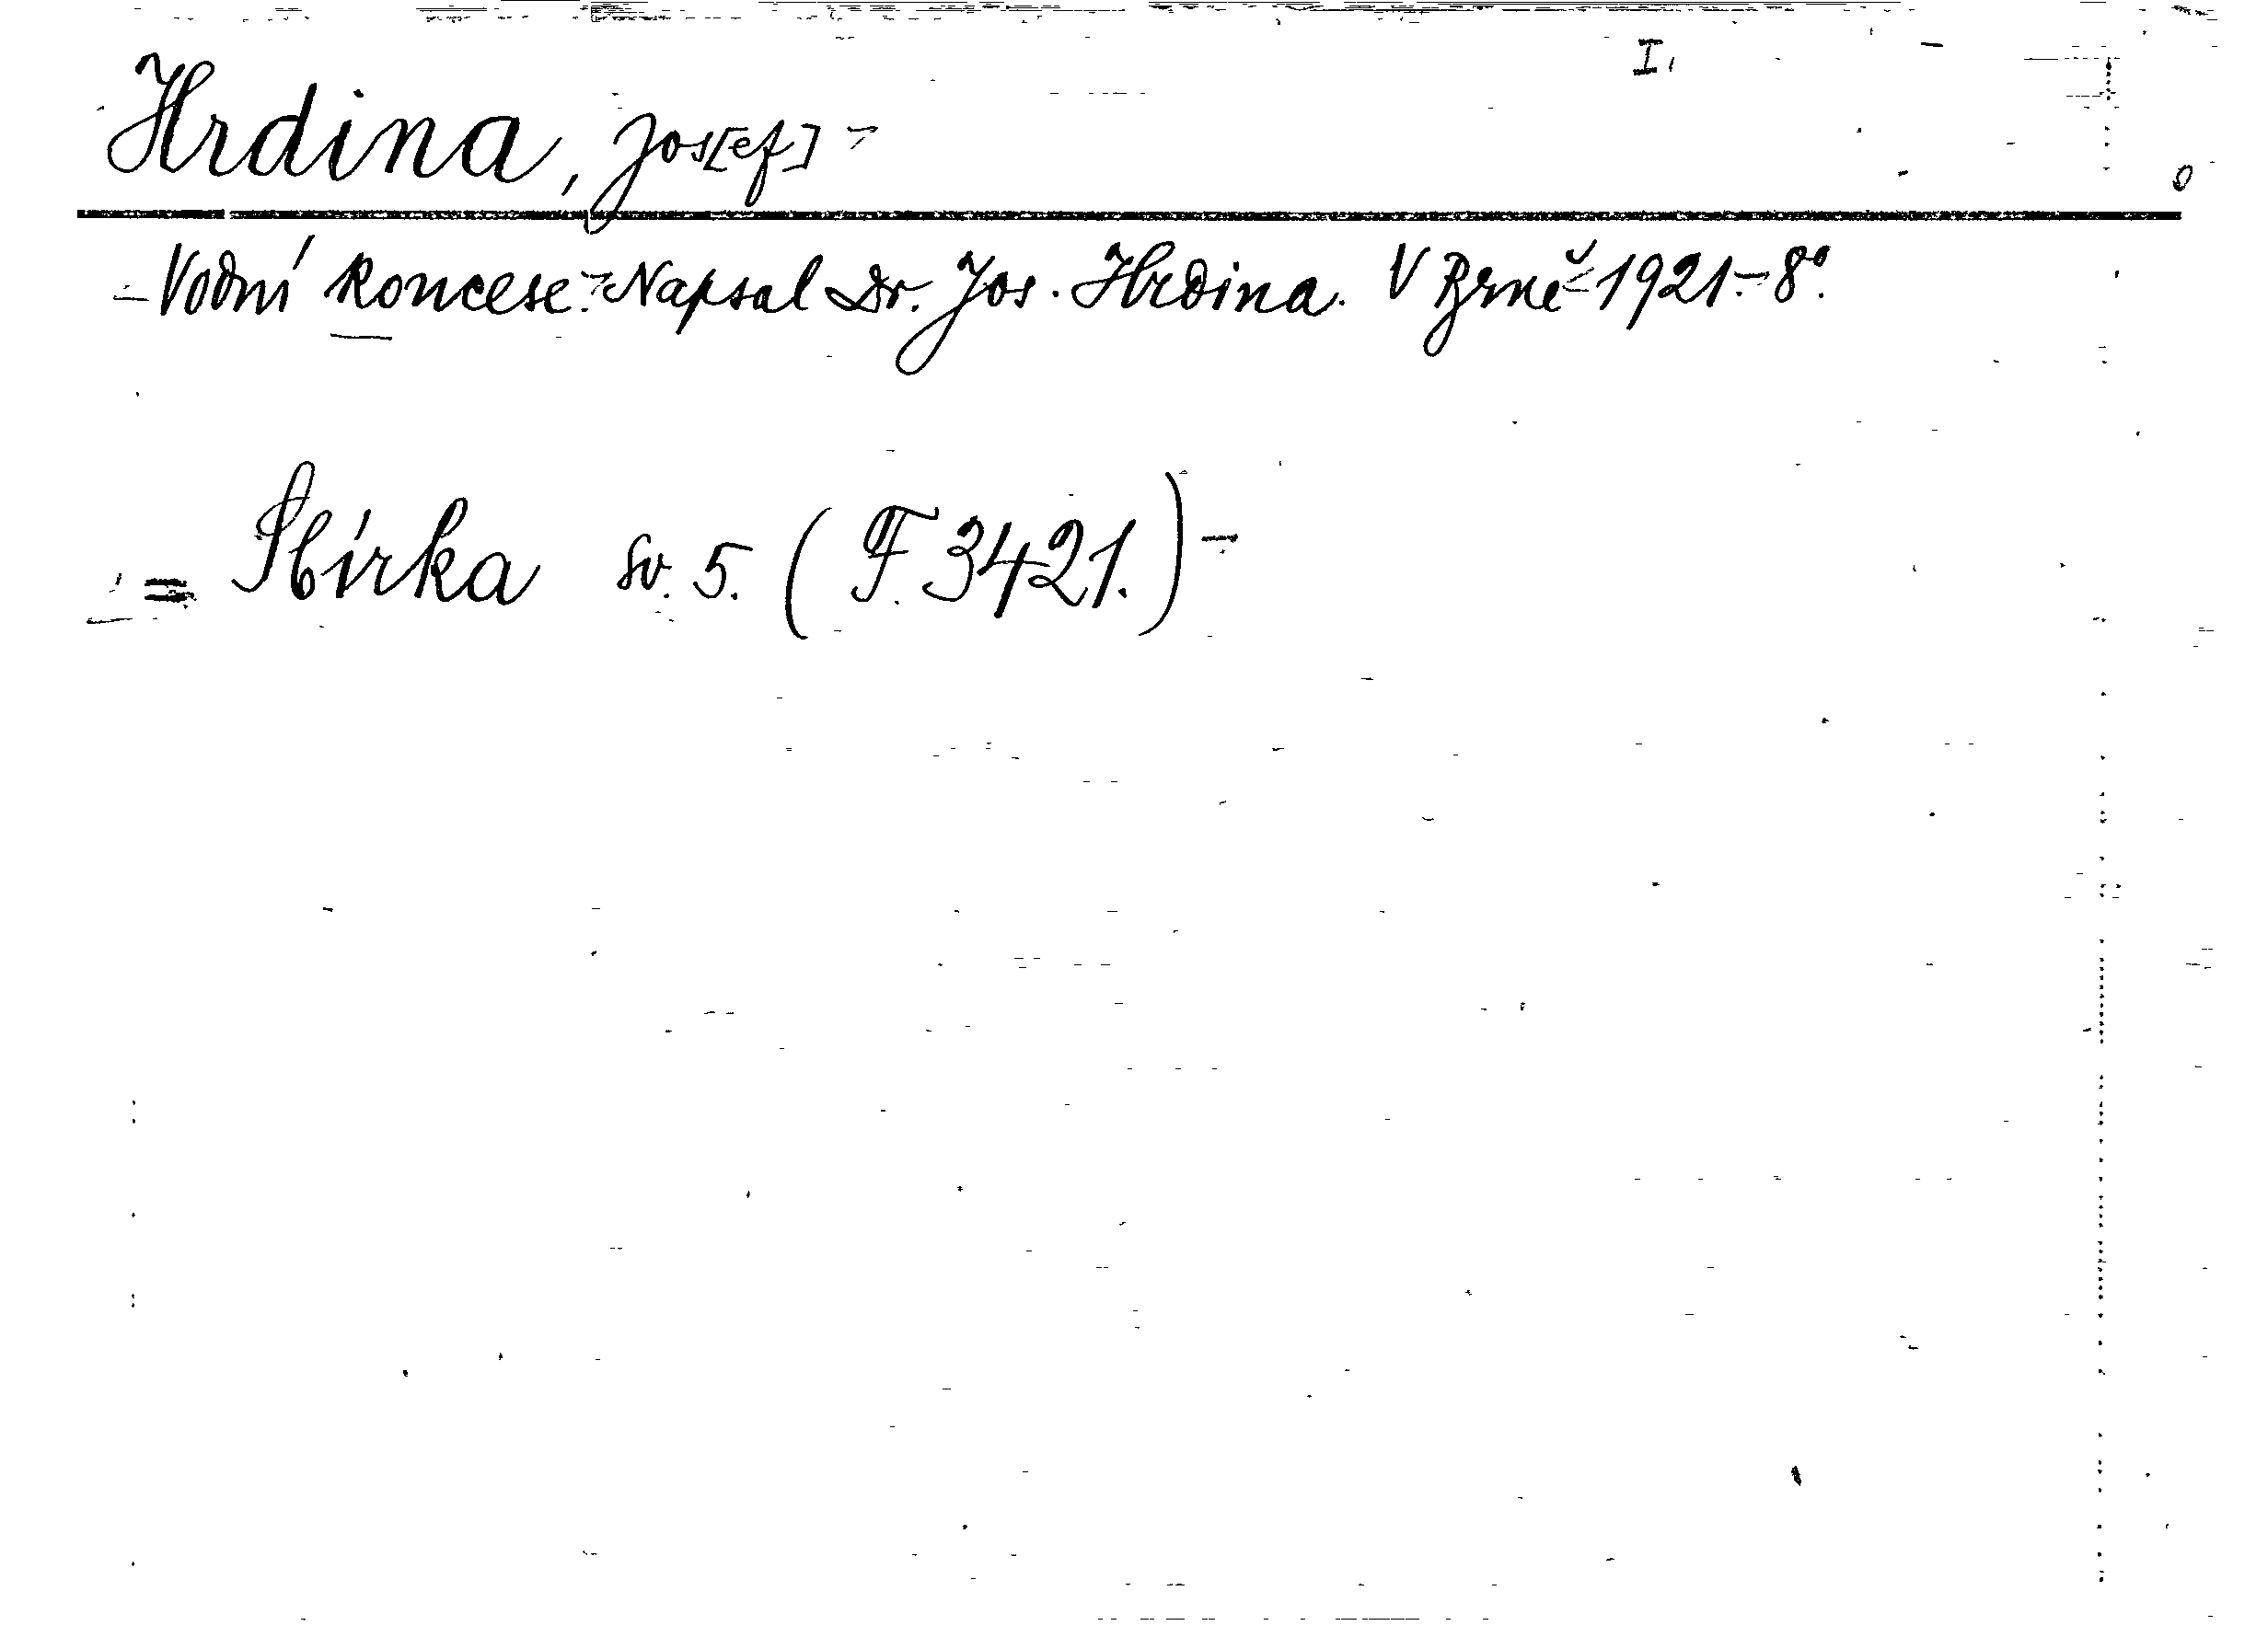 I.
Hrdina, Jos[ef] -
- Vodní koncese. - Napsal Dr. Jos. Hrdina. V Brně - 1921. - 8°.
= Sbírka sv. 5. (F. 3421.) -